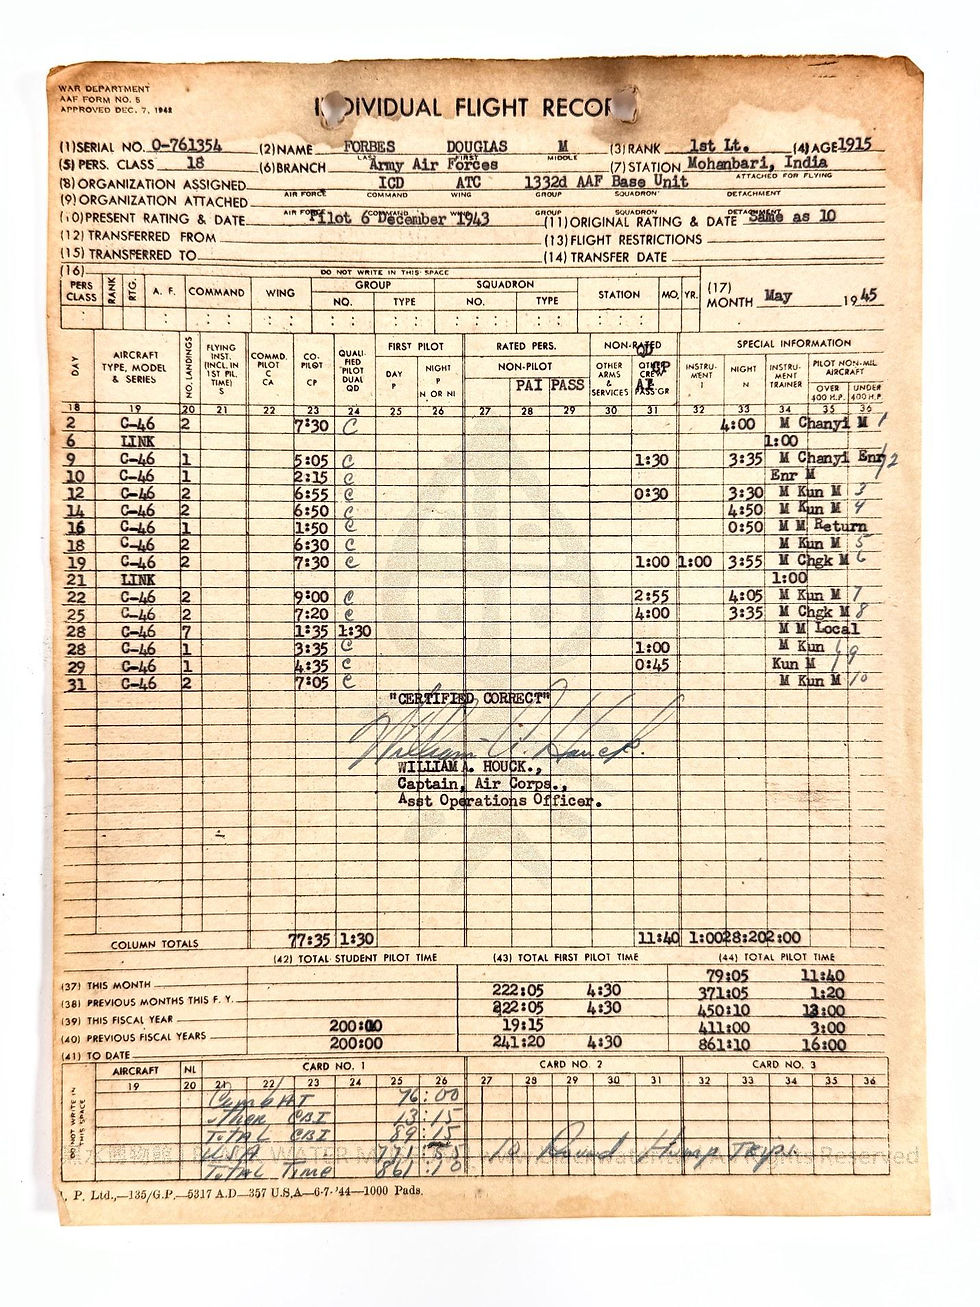 WAR DEPARTMENT
AAF FORM NO. 5
APPROVED DEC. 7, 1942
INDIVIDUAL FLIGHT RECORD
(1) SERIAL NO. O-761354 (2) NAME FORBES DOUGLAS M (3) RANK 1st Lt. (4) AGE 1915
LAST FIRST MIDDLE
(5) PERS. CLASS 18 (6) BRANCH Army Air Forces (7) STATION Mohanbari, India
(8) ORGANIZATION ASSIGNED ICD ATC 1332d AAF Base Unit ATTACHED FOR FLYING
AIR FORCE COMMAND WING GROUP SQUADRON DETACHMENT
(9) ORGANIZATION ATTACHED
AIR FORCE COMMAND WING GROUP SQUADRON DETACHMENT
(10) PRESENT RATING & DATE Pilot 6 December 1943 (11) ORIGINAL RATING & DATE Same as 10
(12) TRANSFERRED FROM (13) FLIGHT RESTRICTIONS
(15) TRANSFERRED TO (14) TRANSFER DATE
(16) DO NOT WRITE IN THIS SPACE
PERS CLASS RANK RTG. A. F. COMMAND WING GROUP NO. TYPE SQUADRON NO. TYPE STATION MO. YR. (17) MONTH May 1945
DAY AIRCRAFT TYPE, MODEL & SERIES NO. LANDINGS FLYING INST. (INCL. IN 1ST PIL. TIME) S COMMD. PILOT C CA CO-PILOT CP QUALIFIED PILOT DUAL QD FIRST PILOT DAY P NIGHT P N OR NI RATED PERS. NON-PILOT PAI PASS NON-RATED OTHER ARMS & SERVICES OTHER CREW PASS'GR CP AI SPECIAL INFORMATION INSTRUMENT I NIGHT N INSTRUMENT TRAINER PILOT NON-MIL. AIRCRAFT OVER 400 H.P. UNDER 400 H.P.
18 19 20 21 22 23 24 25 26 27 28 29 30 31 32 33 34 35 36
2 C-46 2 7:30 C 4:00 M Chanyi M 1
6 LINK 1:00
9 C-46 1 5:05 C 1:30 3:35 M Chanyi Enr 2
10 C-46 1 2:15 C Enr M
12 C-46 2 6:55 C 0:30 3:30 M Kun M 3
14 C-46 2 6:50 C 4:50 M Kun M 4
16 C-46 1 1:50 C 0:50 M M Return
18 C-46 2 6:30 C M Kun M 5
19 C-46 2 7:30 C 1:00 1:00 3:55 M Chgk M 6
21 LINK 1:00
22 C-46 2 9:00 C 2:55 4:05 M Kun M 7
25 C-46 2 7:20 C 4:00 3:35 M Chgk M 8
28 C-46 7 1:35 1:30 M M Local
28 C-46 1 3:35 C 1:00 M Kun
29 C-46 1 4:35 C 0:45 Kun M 9
31 C-46 2 7:05 C M Kun M 10
"CERTIFIED CORRECT"
William A. Houck.
WILLIAM A. HOUCK.,
Captain, Air Corps.,
Asst Operations Officer.
COLUMN TOTALS 77:35 1:30 11:40 1:00 28:20 2:00
(42) TOTAL STUDENT PILOT TIME (43) TOTAL FIRST PILOT TIME (44) TOTAL PILOT TIME
(37) THIS MONTH 79:05 11:40
(38) PREVIOUS MONTHS THIS F. Y. 222:05 4:30 371:05 1:20
(39) THIS FISCAL YEAR 222:05 4:30 450:10 13:00
(40) PREVIOUS FISCAL YEARS 200:00 19:15 411:00 3:00
(41) TO DATE 200:00 241:20 4:30 861:10 16:00
AIRCRAFT NL CARD NO. 1 CARD NO. 2 CARD NO. 3
19 20 21 22 23 24 25 26 27 28 29 30 31 32 33 34 35 36
DO NOT WRITE IN THIS SPACE
Combat 76:00
other CBI 13:15
Total CBI 89:15
USA 771:55 10 Round Hump Trips.
Total Time 861:10
All Rights Reserved
P. Ltd.,—135/G.P.—5317 A.D—357 U.S.A—6-7-'44—1000 Pads.